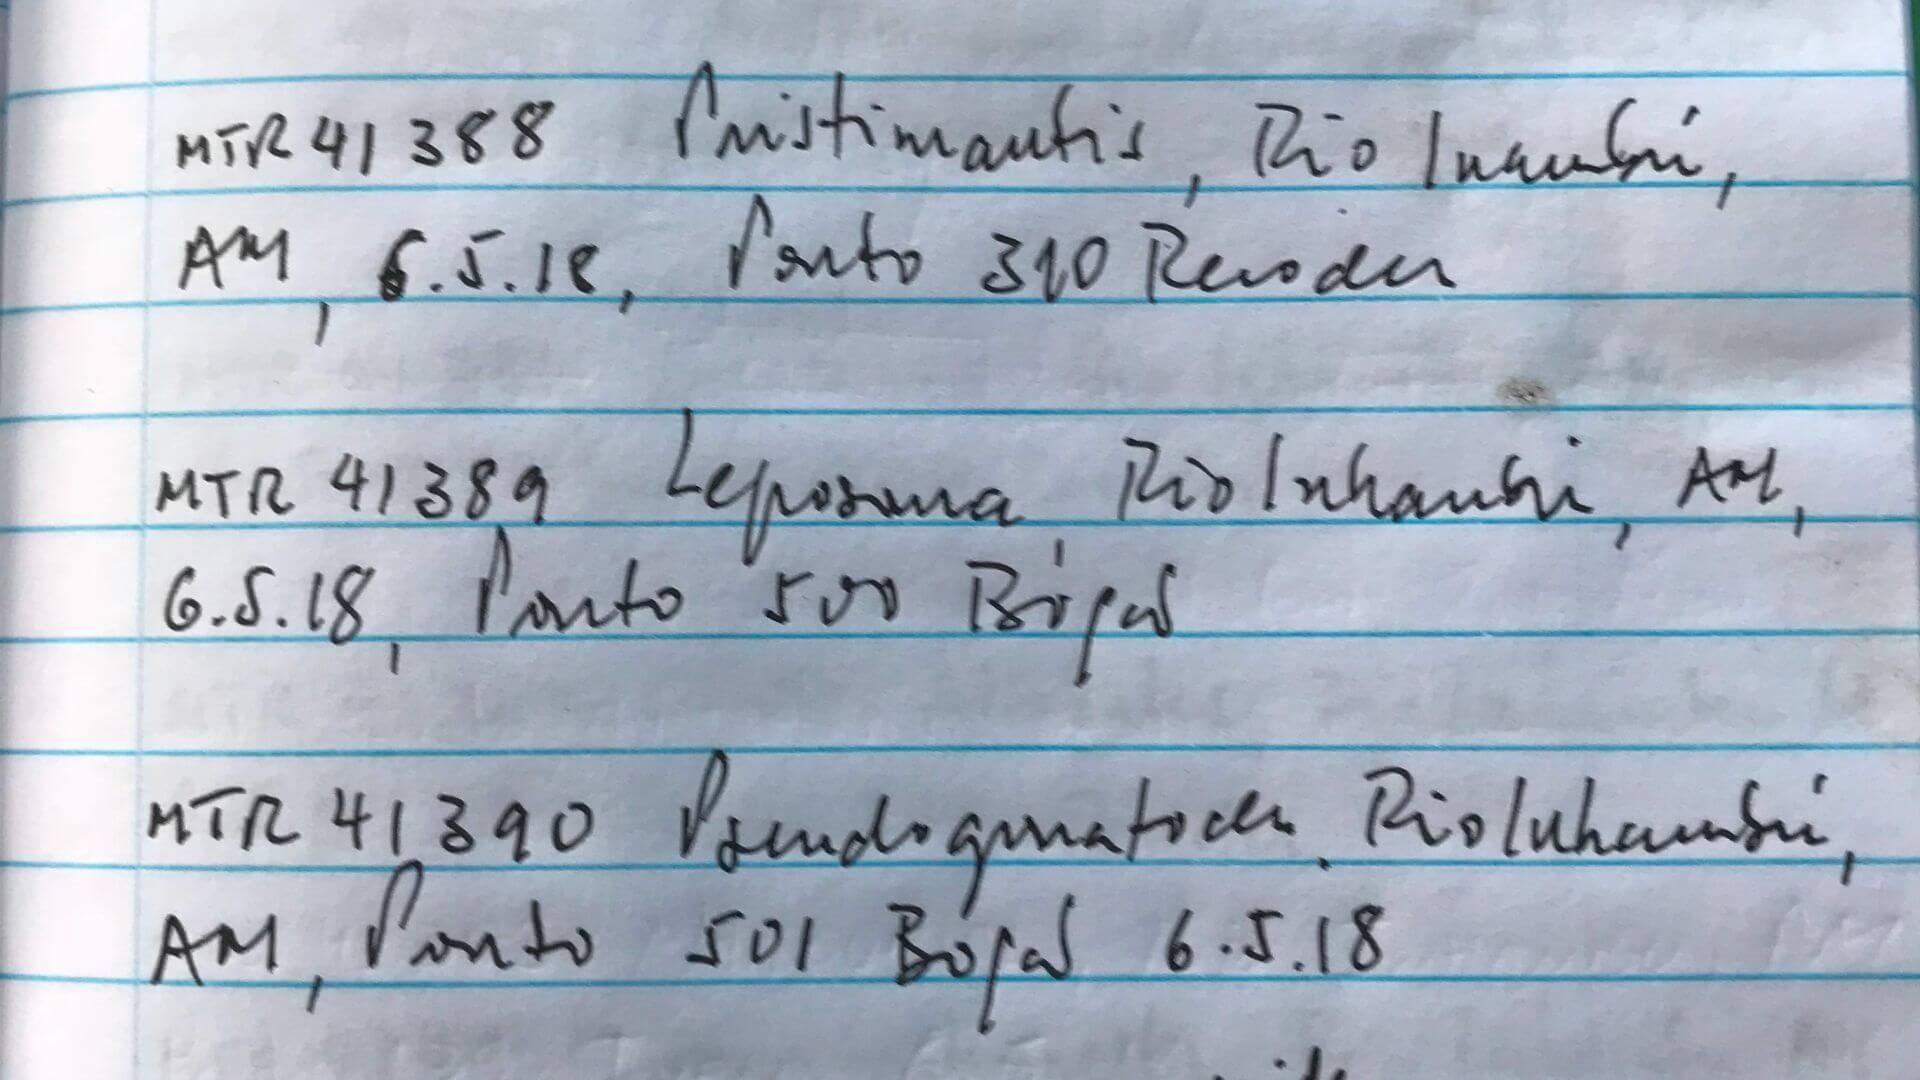 MTR 41388 Pristimantis, Rio Inambú,
AM, 6.5.18, Ponto 310
MTR 41389 Leposoma, Rio Inhambú, AM,
6.5.18, Ponto 500 Bógas
MTR 41390 Pseudogonatodes, Rio Inhambú,
AM, Ponto 501 Bógas 6.5.18